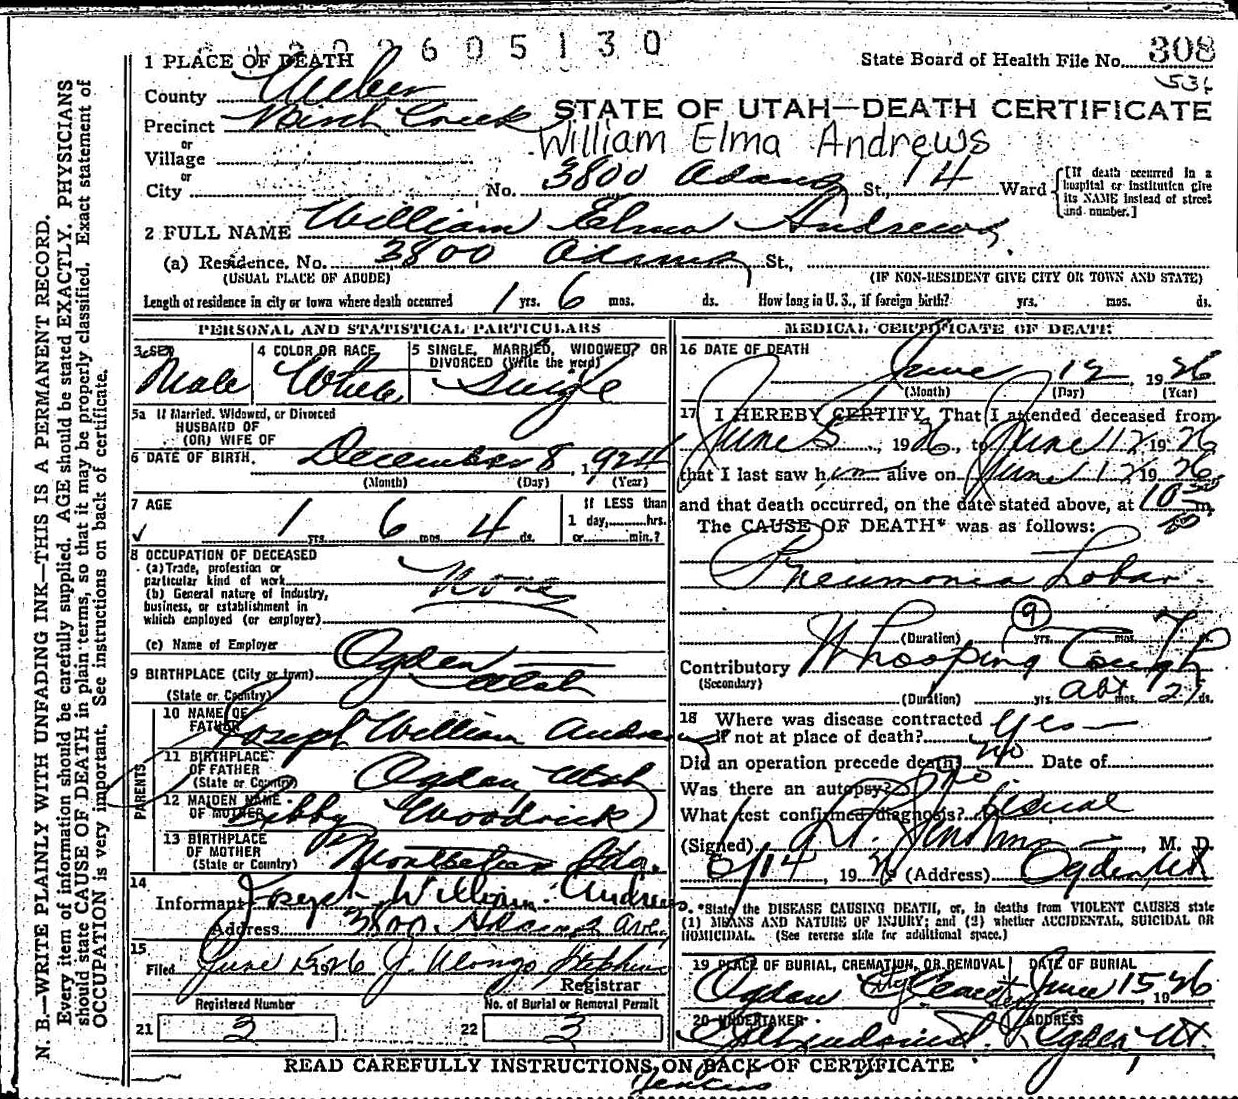 2605130
1 PLACE OF DEATH
State Board of Health File No. 308
County Weber
STATE OF UTAH—DEATH CERTIFICATE
Precinct Creek
William Elma Andrews
or
Village
or
City No. 3800 Adams St., 14 Ward
[If death occurred in a hospital or institution give its NAME instead of street and number.]
2 FULL NAME William Elma Andrews
(a) Residence. No. 3800 Adams St.,
(USUAL PLACE OF ABODE) (IF NON-RESIDENT GIVE CITY OR TOWN AND STATE)
Length of residence in city or town where death occurred 1 yrs. 6 mos. ds. How long in U. S., if foreign birth? yrs. mos. ds.
PERSONAL AND STATISTICAL PARTICULARS
3 SEX Male
4 COLOR OR RACE White
5 SINGLE, MARRIED, WIDOWED, OR DIVORCED (Write the word) Single
5a If Married, Widowed, or Divorced
HUSBAND OF
(OR) WIFE OF
6 DATE OF BIRTH. December 8, 1924
(Month) (Day) (Year)
7 AGE 1 yrs. 6 mos. 4 ds.
If LESS than
1 day, hrs.
or min.?
8 OCCUPATION OF DECEASED
(a) Trade, profession or
particular kind of work
(b) General nature of Industry,
business, or establishment in
which employed (or employer)
None
(c) Name of Employer
9 BIRTHPLACE (City or town) Ogden
(State or Country) Utah
PARENTS
10 NAME OF FATHER Joseph William Andrews
11 BIRTHPLACE OF FATHER (State or Country) Ogden Utah
12 MAIDEN NAME OF MOTHER Libby Woodrick
13 BIRTHPLACE OF MOTHER (State or Country) Montpelier Ida.
14
Informant Joseph William Andrews
Address 3800 Adams Ave.
15
Filed June 15 1926 J. Alonzo Stephens
Registrar
Registered Number
21 3
No. of Burial or Removal Permit
22 3
MEDICAL CERTIFICATE OF DEATH
16 DATE OF DEATH
June 12, 1926
(Month) (Day) (Year)
17 I HEREBY CERTIFY, That I attended deceased from
June 5, 1926, to June 12 1926
that I last saw him alive on June 12 1926
and that death occurred, on the date stated above, at 10 m.
The CAUSE OF DEATH* was as follows:
Pneumonia Lobar
9
(Duration) yrs. mos. 7 ds.
Contributory Whooping Cough
(Secondary)
(Duration) yrs. abt mos. 21 ds.
18 Where was disease contracted
if not at place of death? Yes
Did an operation precede death? No Date of
Was there an autopsy? No
What test confirmed diagnosis?
(Signed) , M. D.
6/14, 1926 (Address) Ogden, Ut
*State the DISEASE CAUSING DEATH, or, in deaths from VIOLENT CAUSES state
(1) MEANS AND NATURE OF INJURY; and (2) whether ACCIDENTAL, SUICIDAL OR
HOMICIDAL. (See reverse side for additional space.)
19 PLACE OF BURIAL, CREMATION, OR REMOVAL Ogden City
DATE OF BURIAL June 15, 1926
20 UNDERTAKER
ADDRESS Ogden, Ut.
READ CAREFULLY INSTRUCTIONS ON BACK OF CERTIFICATE
Jenkins
N. B.—WRITE PLAINLY WITH UNFADING INK—THIS IS A PERMANENT RECORD.
Every item of information should be carefully supplied. AGE should be stated EXACTLY. PHYSICIANS
should state CAUSE OF DEATH in plain terms, so that it may be properly classified. Exact statement of
OCCUPATION is very important. See instructions on back of certificate.